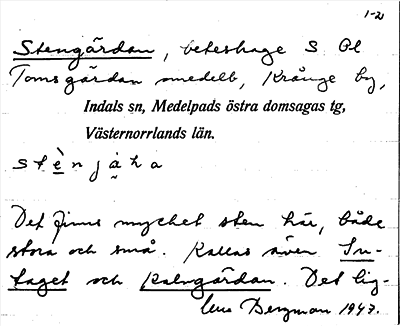 1-2
Stengårdan, beteshage S Ol
Tomsgårdan smedelb, Krånge by,
Indals sn, Medelpads östra domsagas tg,
Västernorrlands län.
stènjåha
Det finns mycket sten här, både
stora och små. Kallas även In-
taget och Kalvgårdan. Det lig-
Bergman 1947.